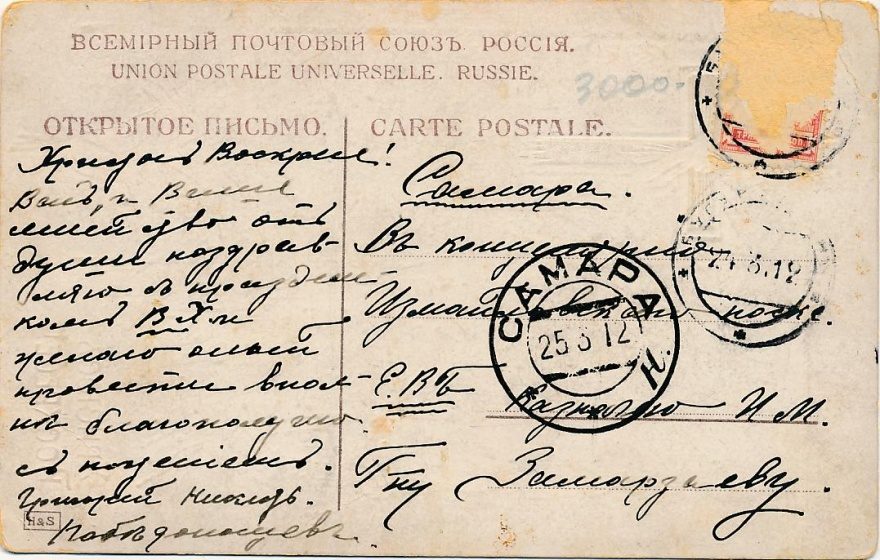 ВСЕМІРНЫЙ ПОЧТОВЫЙ СОЮЗЪ. РОССІЯ.
UNION POSTALE UNIVERSELLE. RUSSIE.
3000.-
ОТКРЫТОЕ ПИСЬМО.
CARTE POSTALE.
Христосъ Воскресе!
Васъ, и Ваше
души поздрав-
ляю съ праздни-
комъ В. Х. и
желаю оный
провести впол-
нѣ благополучно.
съ почтеніемъ.
Григорій
Побѣдоносцевъ.
H&S
Самара.
Въ
Измайловскаго полка.
Е.ВБ
Казначею И М.
Гну Замарзаеву.
САМАРА
25 3 12
Н.
24.3.12